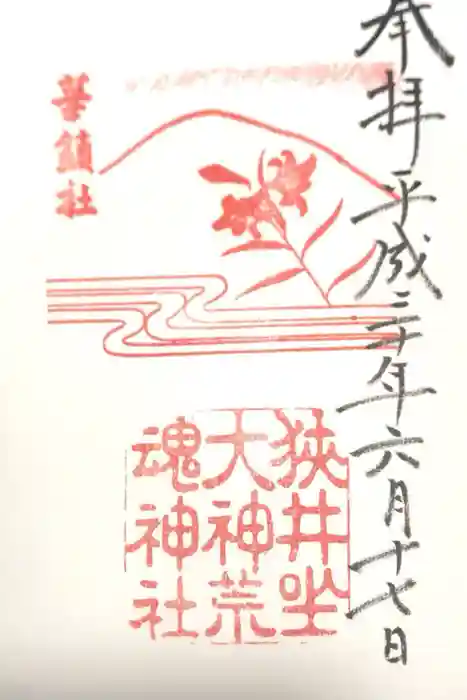 奉拝 平成三十年六月十七日
華鎮社
狭井坐
大神荒
魂神社